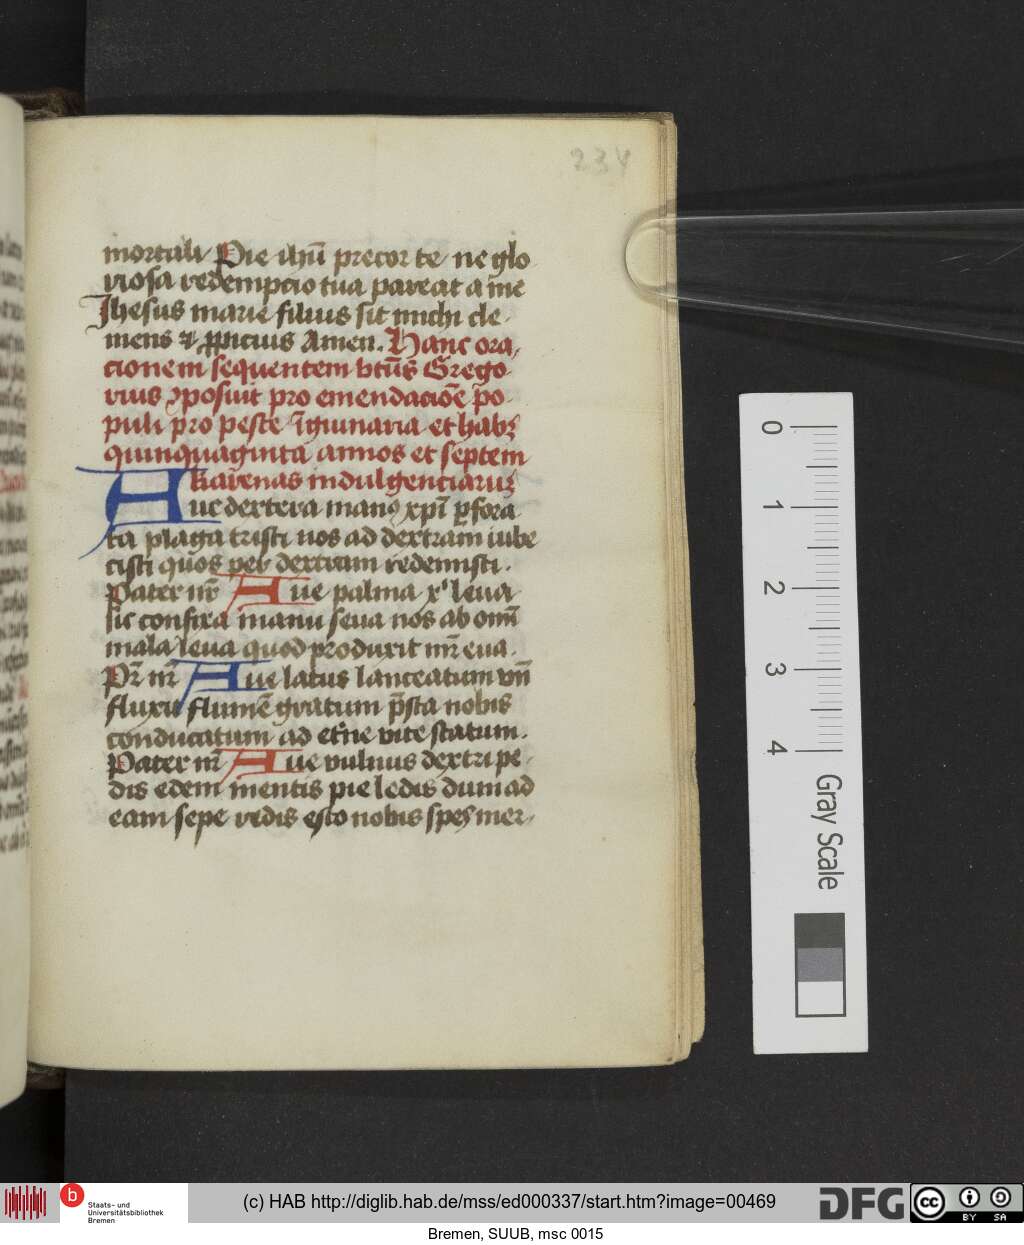 234
mortali Pie ihū precor te ne glo
riosa redemptio tua pareat a me
Jhesus marie filius sit michi cle
mens et ꝓpicius Amen. Hanc ora
cionem sequentem btūs Grego
rius ꝯposuit pro emendacōe po
puli pro peste īgwinaria et habꝫ
quinquaginta annos et septem
karenas indulgenciarūꝫ
Aue dextera manꝯ xp̄i ꝑfora
ta plaga tristi nos ad dextram iube
cisti quos per dextram redemisti.
Pater nr̄ Aue palma xp̄i leua
sic confixa manu seua nos ab om̄i
mala leua quod produxit mr̄ eua.
Pr̄ nr̄ Aue latus lanceatum vn̄
fluxit flumē gratum p̄sta nobis
conducatum ad et̄ne vite statum.
Pater nr̄ Aue vulnus dextri pe
dis edem mentis pie ledis dum ad
eam sepe redis esto nobis spes mer
0
1
2
3
4
Gray Scale
b
Staats- und
Universitätsbibliothek
Bremen
(c) HAB http://diglib.hab.de/mss/ed000337/start.htm?image=00469
DFG
cc
BY SA
Bremen, SUUB, msc 0015